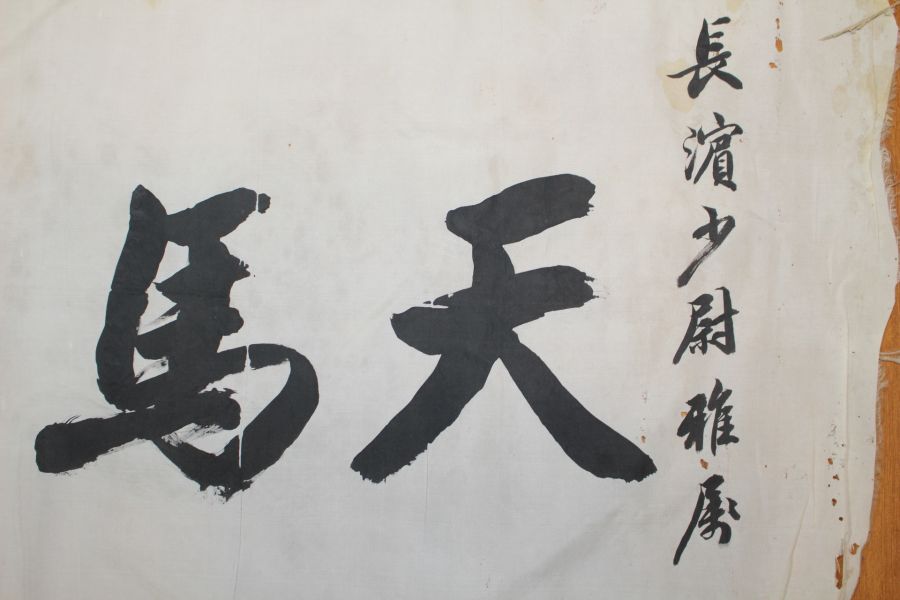 長濵少尉雅属
天馬